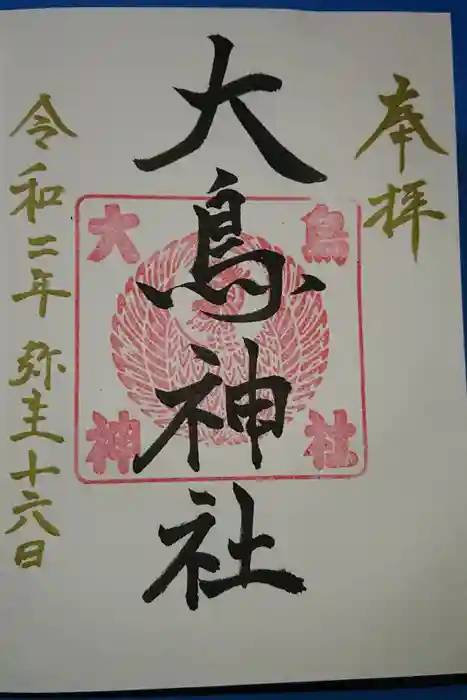 奉拝
大鳥神社
令和二年 弥生十六日
大鳥
神社